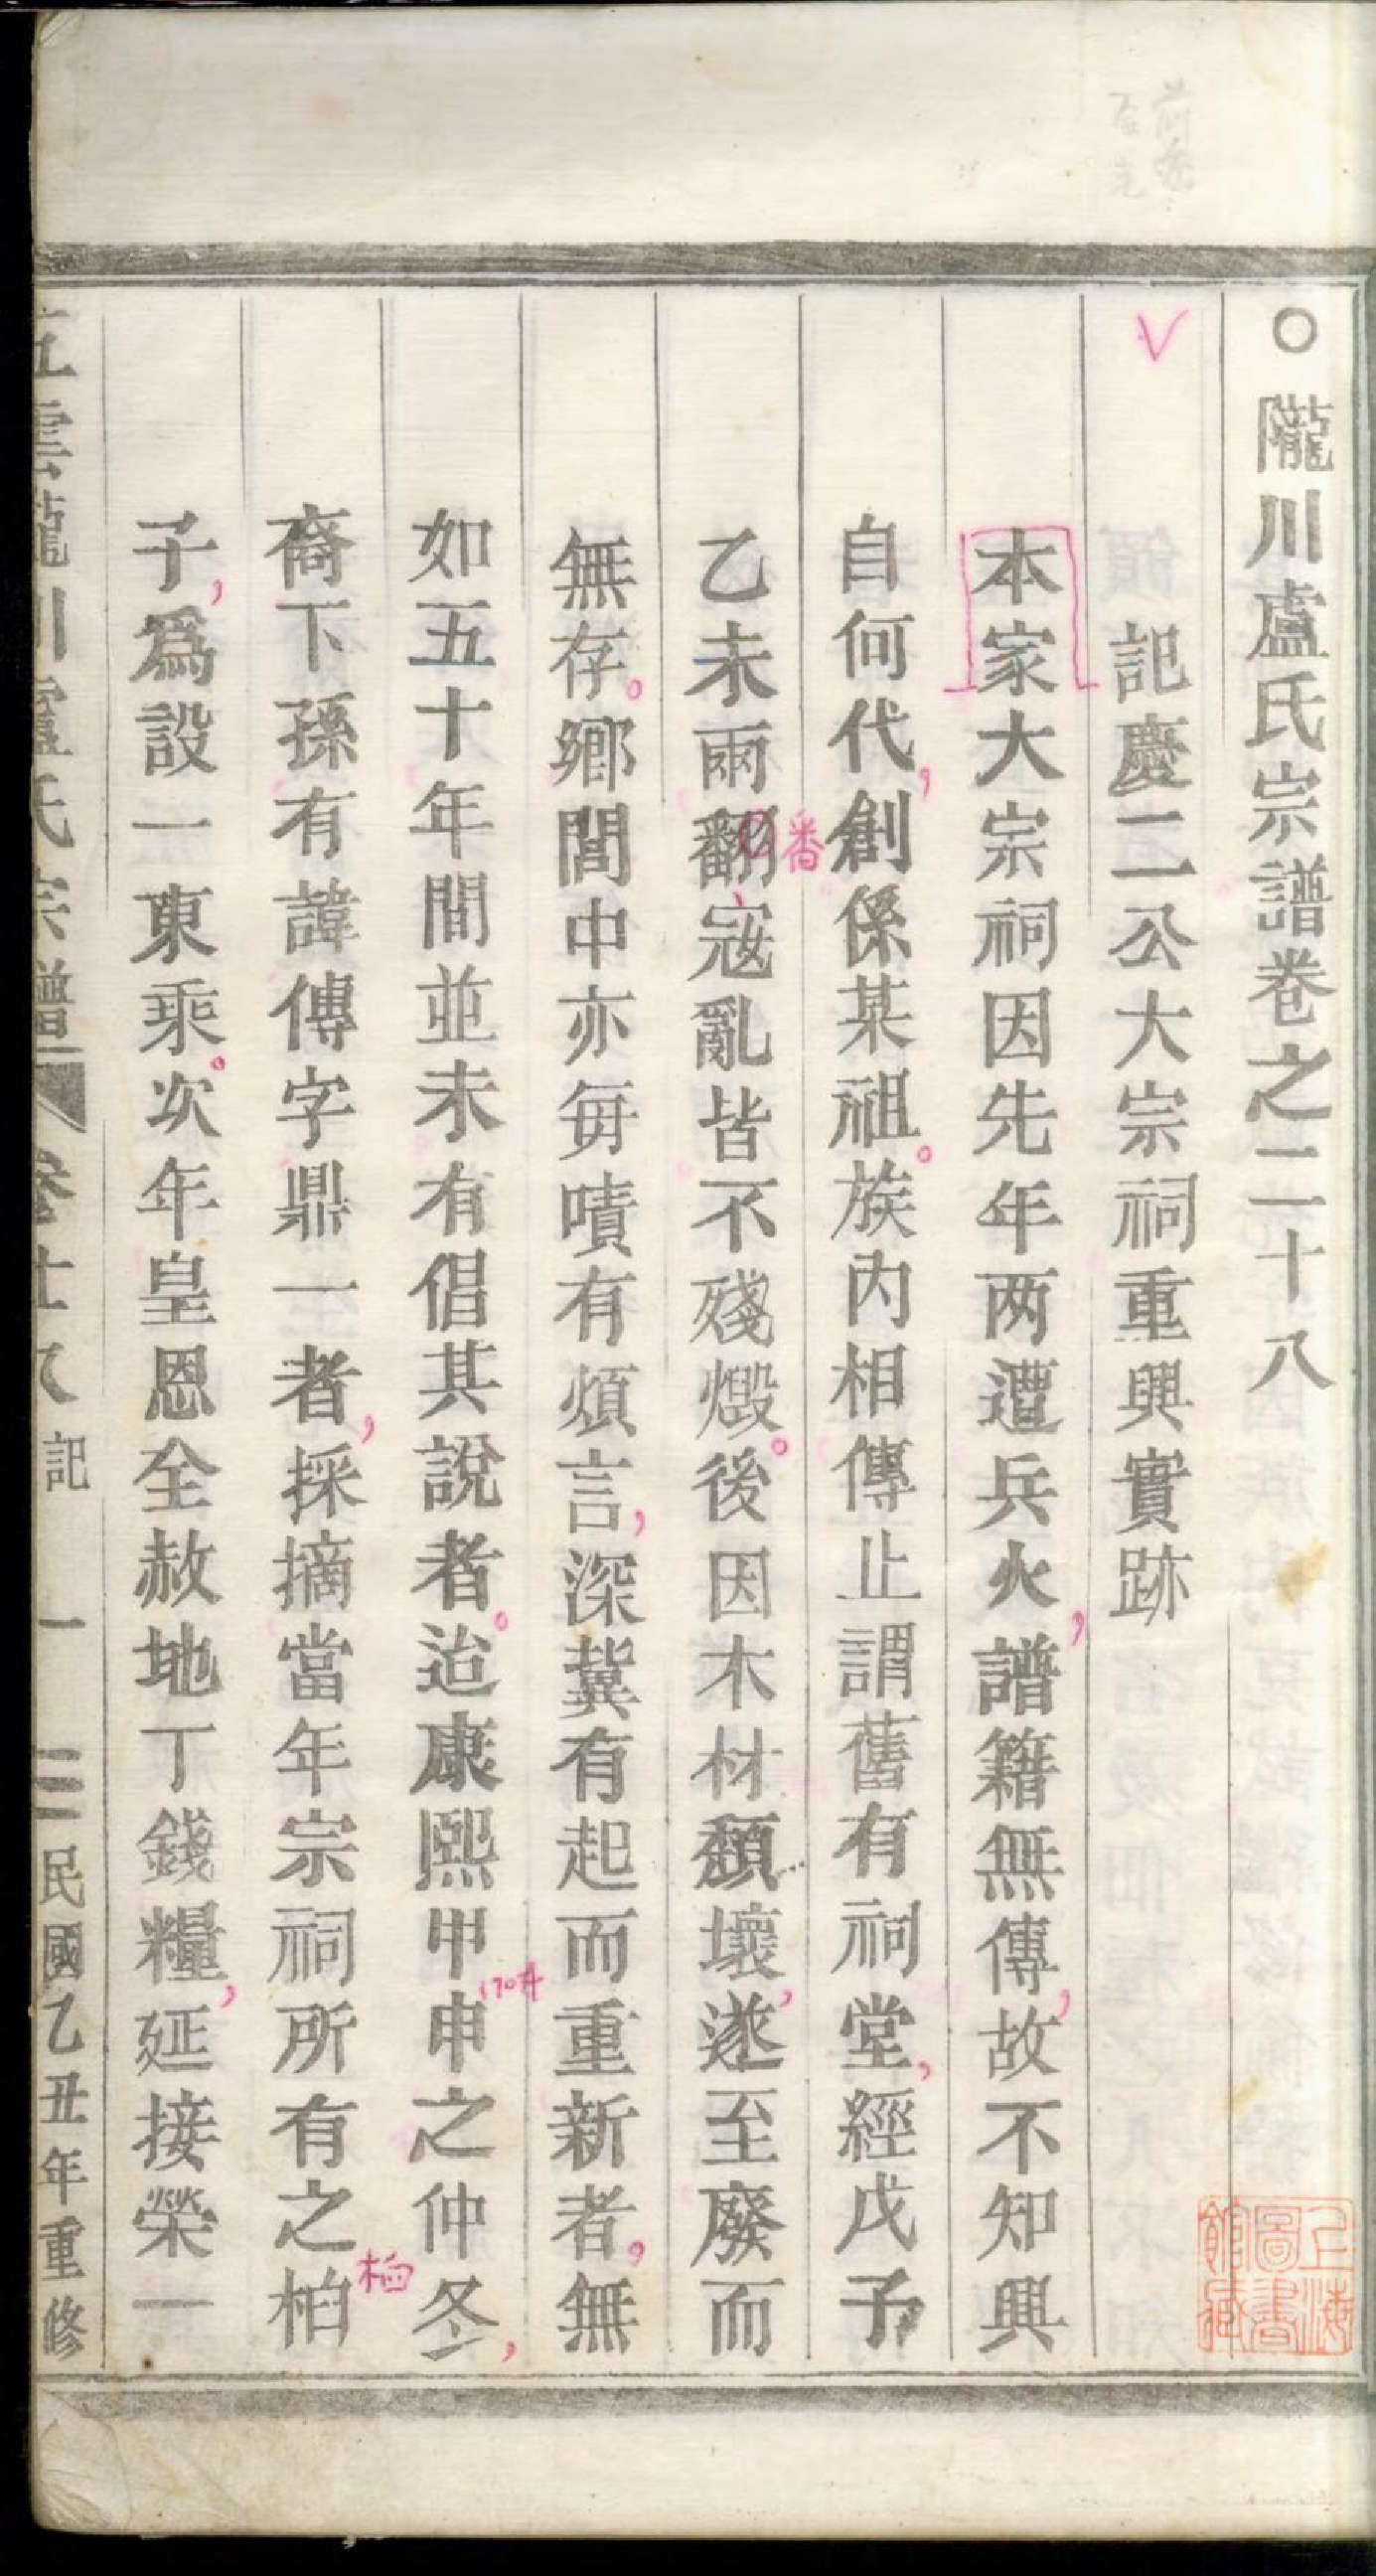 ○隴川盧氏宗譜卷之二十八
記慶二公大宗祠重興實跡
本家大宗祠因先年两遭兵火,譜籍無傳,故不知興
自何代,創係某祖。族內相傳止謂舊有祠堂,經戊子
乙未兩翻寇亂皆不殘燬。後因木材頹壞,遂至廢而
無存。鄉閭中亦毎嘖有煩言,深冀有起而重新者,無
如五十年間並未有倡其說者。迨康熙甲申之仲冬,
裔下孫有諱傳字鼎一者,採摘當年宗祠所有之柏
子,爲設一東乘。次年皇恩全赦地丁錢糧,延接榮一
五雲隴川盧氏宗譜 卷廿八 記 一 民國乙丑年重修
番
1704
柏
上海圖書館藏